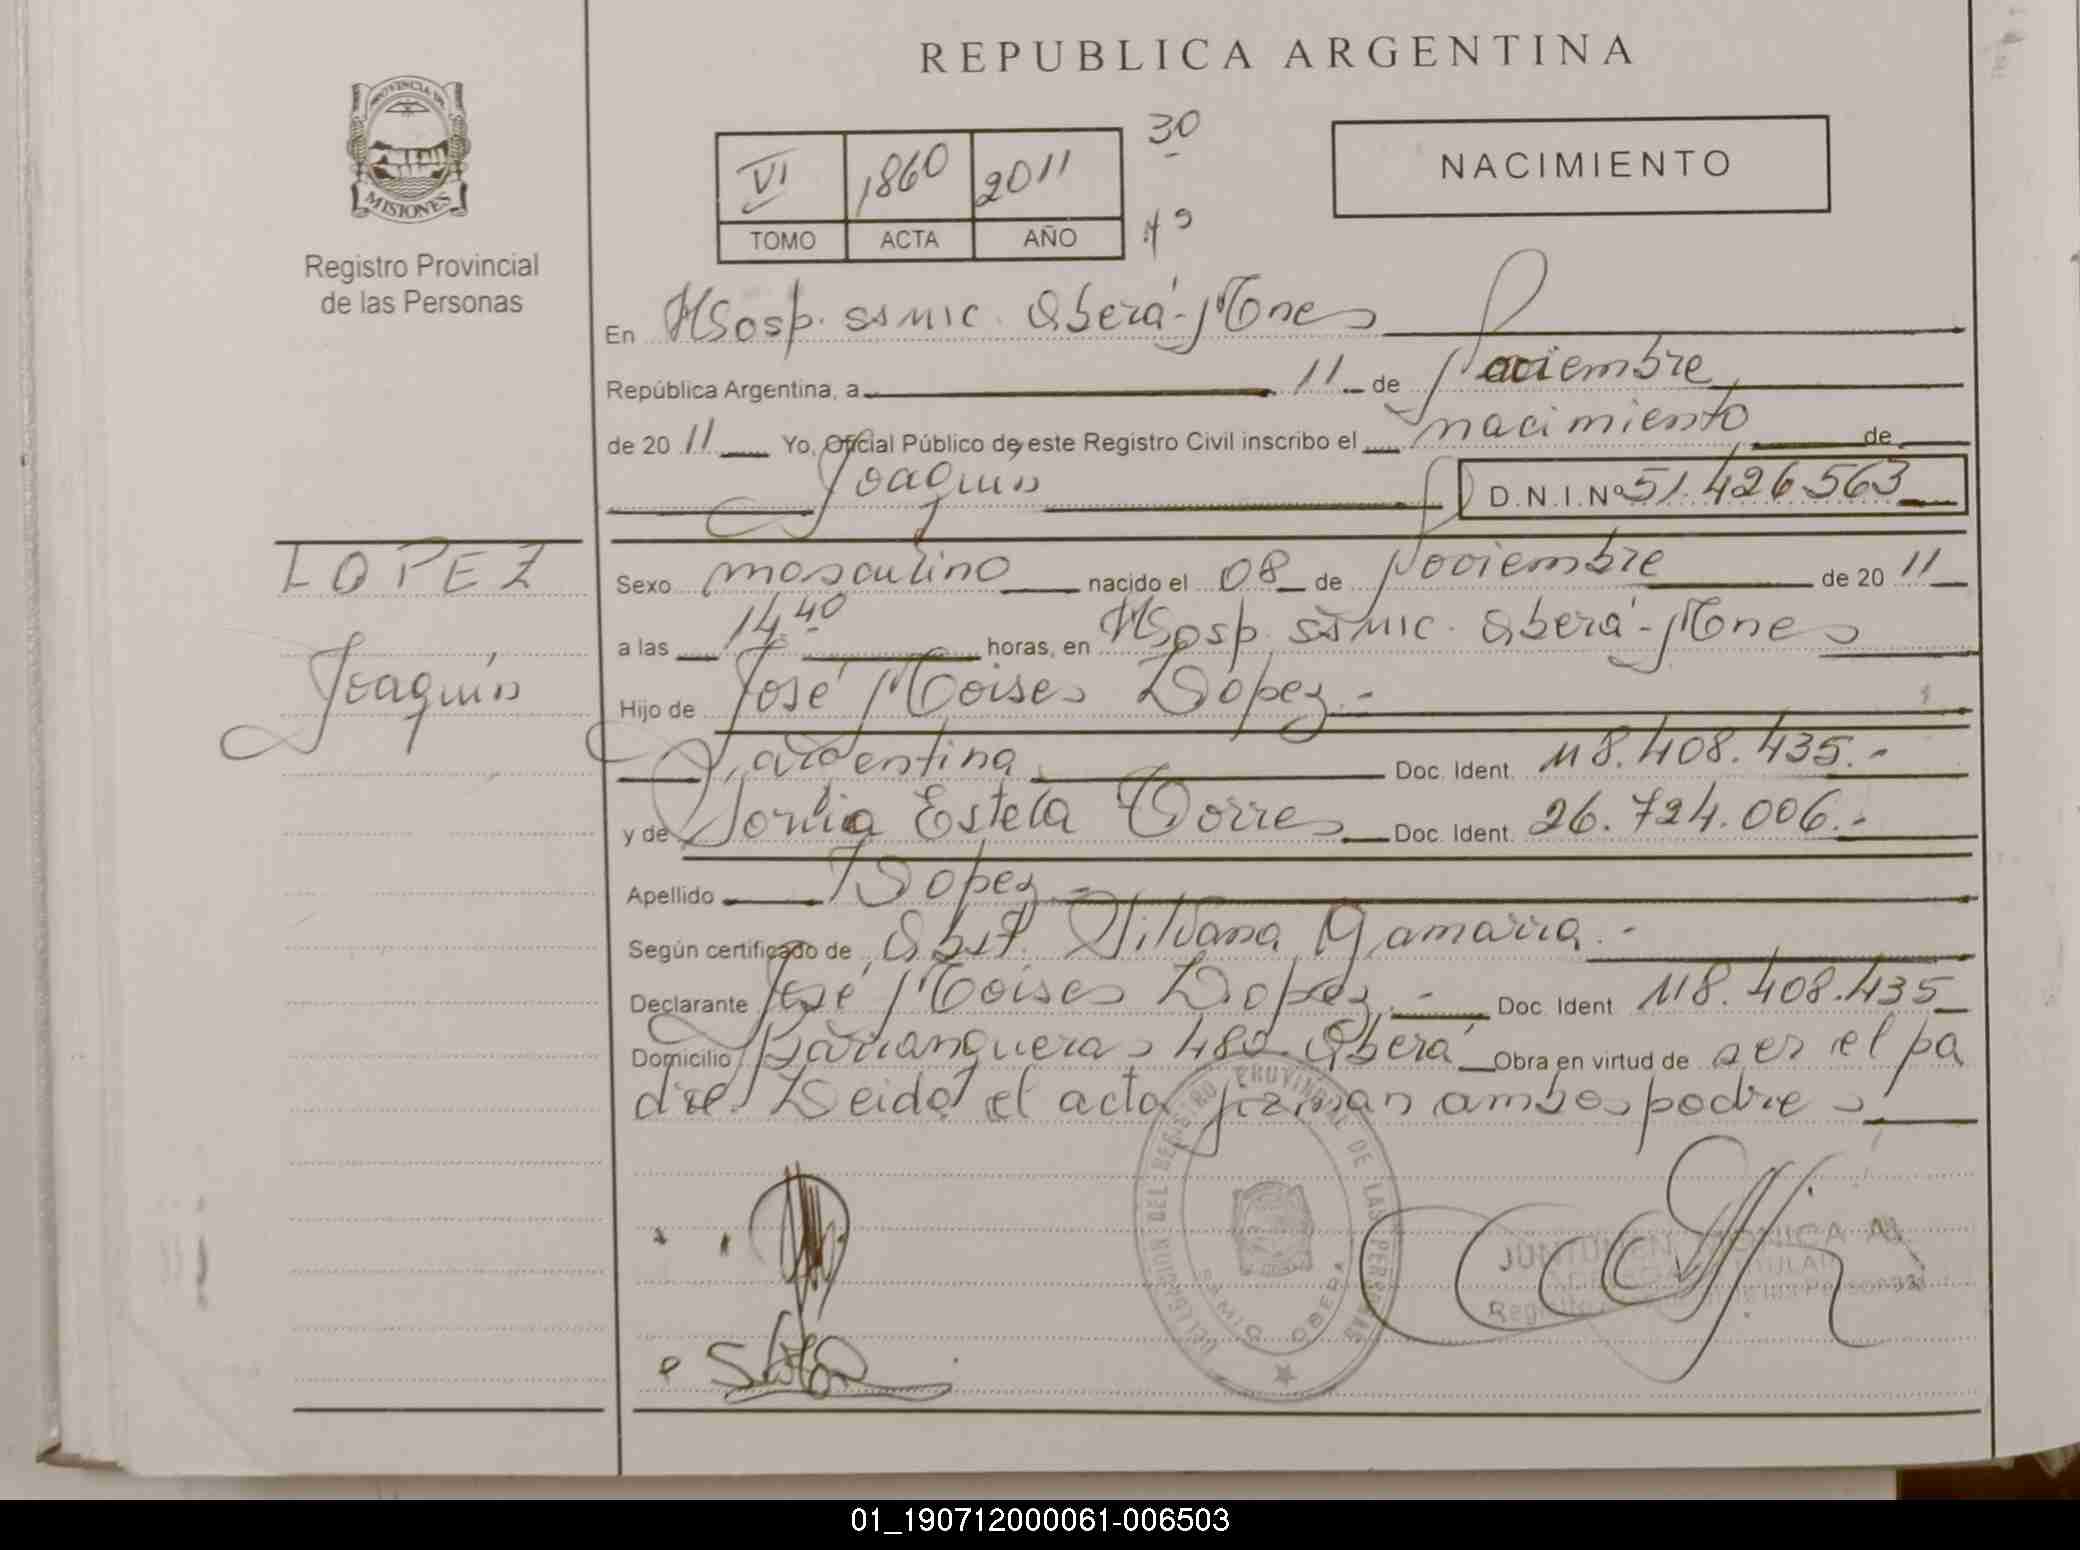 REPUBLICA ARGENTINA
PROVINCIA DE
MISIONES
Registro Provincial
de las Personas
VI 1860 2011
TOMO ACTA AÑO
30
NACIMIENTO
En Hosp. ssmic. Oberá-Mnes
República Argentina, a 11 de Noviembre
de 20 11 Yo, Oficial Público de este Registro Civil inscribo el nacimiento de
Joaquín D.N.I.Nº 51.426.563
LOPEZ
Joaquín
Sexo masculino nacido el 08 de Noviembre de 20 11
a las 14 40 horas, en Hosp. ssmic. Oberá-Mnes
Hijo de José Moises Lopez.-
argentina Doc. Ident. M8.408.435.-
y de Sonia Estela Torres Doc. Ident. 26.724.006.-
Apellido Lopez.-
Según certificado de Obst. Silvana Gamarra.-
Declarante José Moises Lopez.- Doc. Ident M8.408.435
Domicilio Barranqueras 480-Oberá Obra en virtud de ser el pa
dre. Leida el acta firman ambos padres
DELEGACION DEL REGISTRO PROVINCIAL DE LAS PERSONAS
OBERA
MONICA
01_190712000061-006503